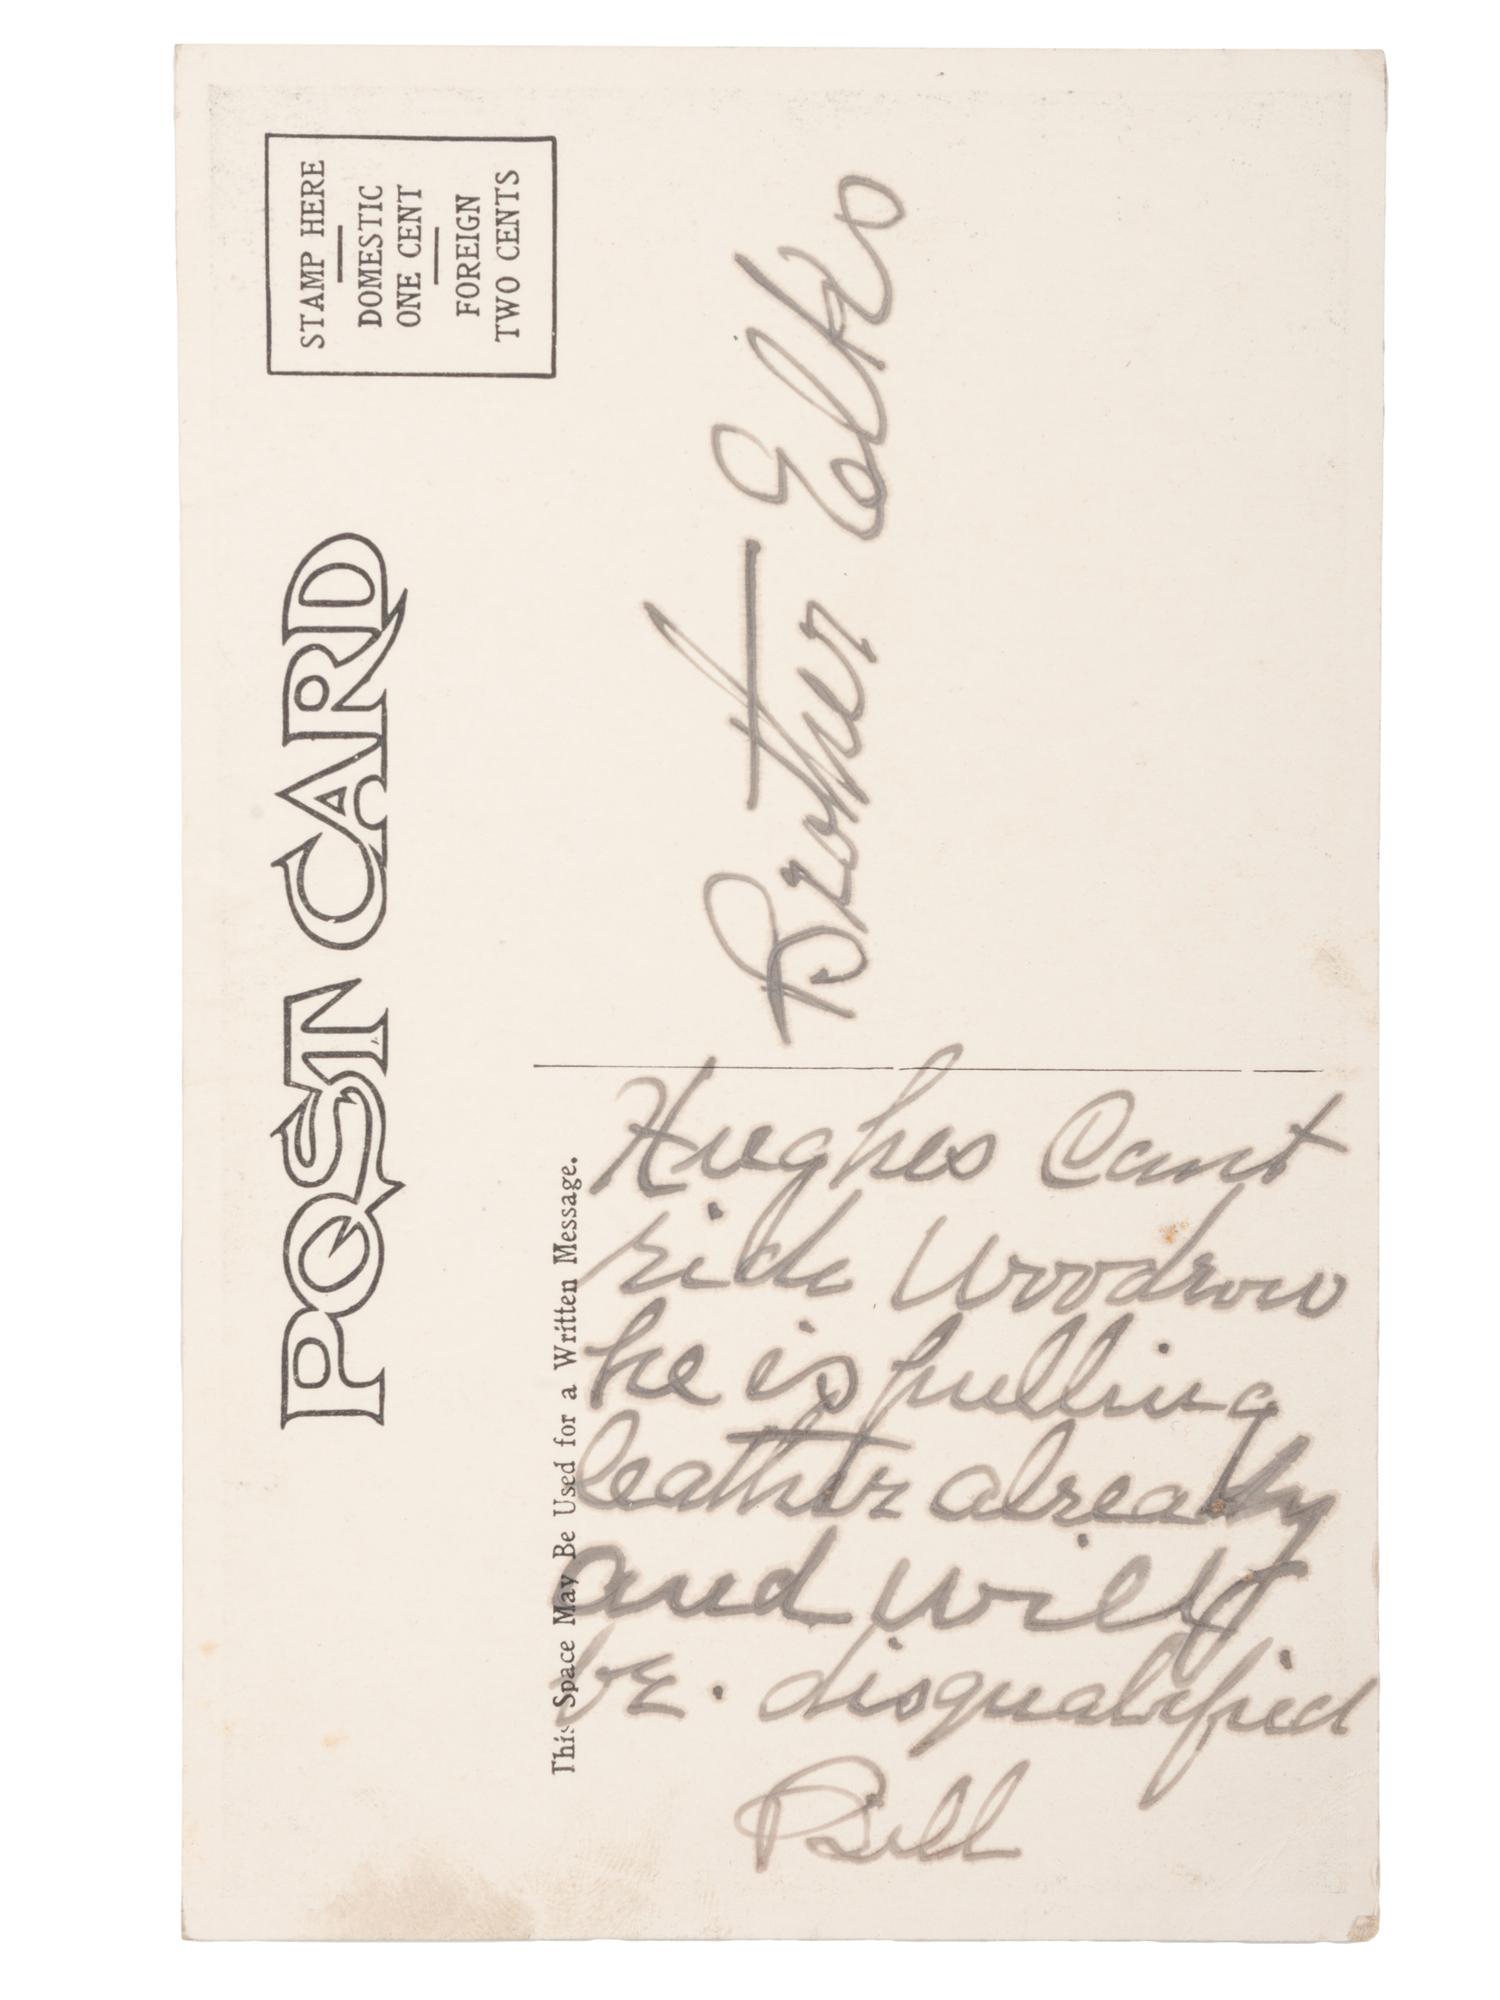 POST CARD
STAMP HERE
DOMESTIC
ONE CENT
FOREIGN
TWO CENTS
This Space May Be Used for a Written Message.
Brother Elks
Hughes Cant
ride Woodrow
he is pulling
leather already
and will
be. disqualified
Bill